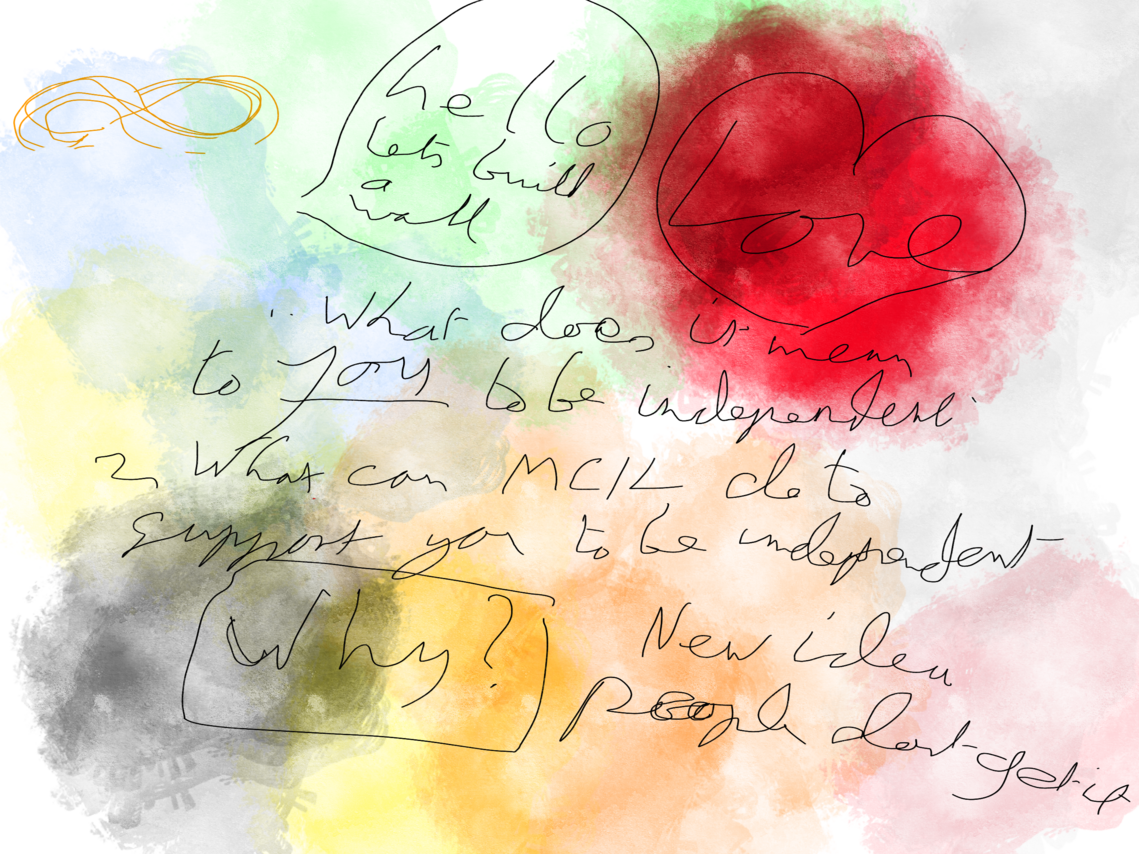 hello
lets build
a
wall
Love
What does it mean
to you to be independent
2 What can MCIL do to
support you to be independent
Why?
New idea
people dont get it